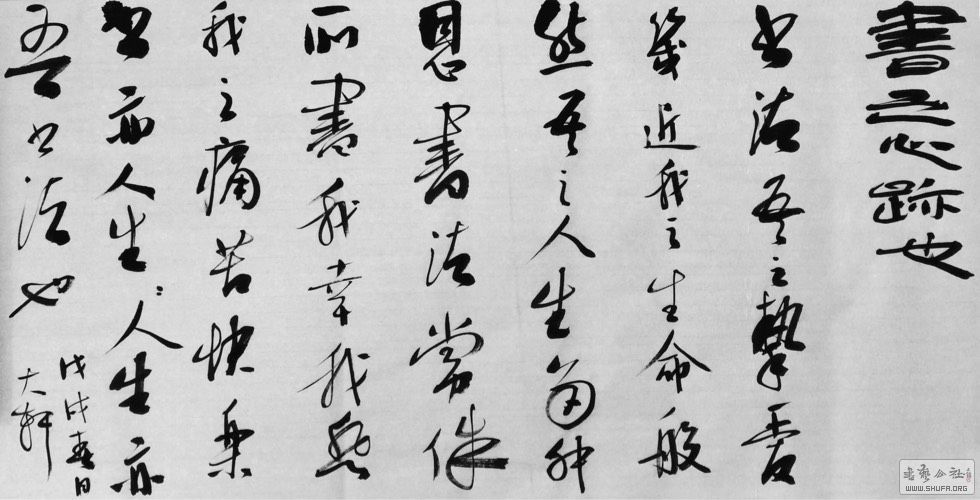 書之心跡也
书法吾之摯愛
幾近我之生命般
然吾之人生神
恩書法常
所書我幸我
我之痛苦快樂
书亦人生人生亦
吾书法也
戊戌春日
大軒
書藝公社
WWW.SHUFA.ORG